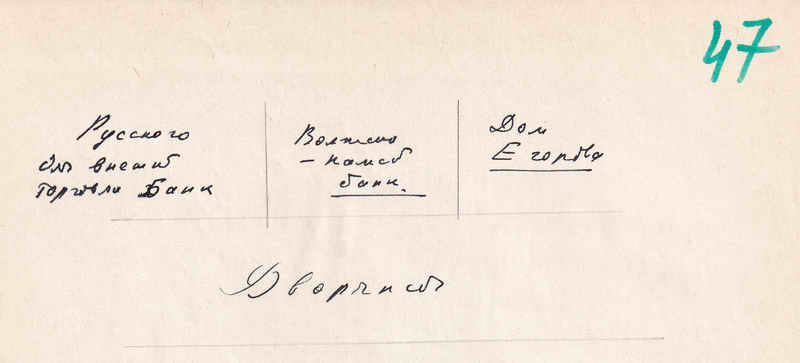 47
Русского
для внешней
торговли Банк
Волжско
– Камск
банк.
Дом
Егорова
Дворянск